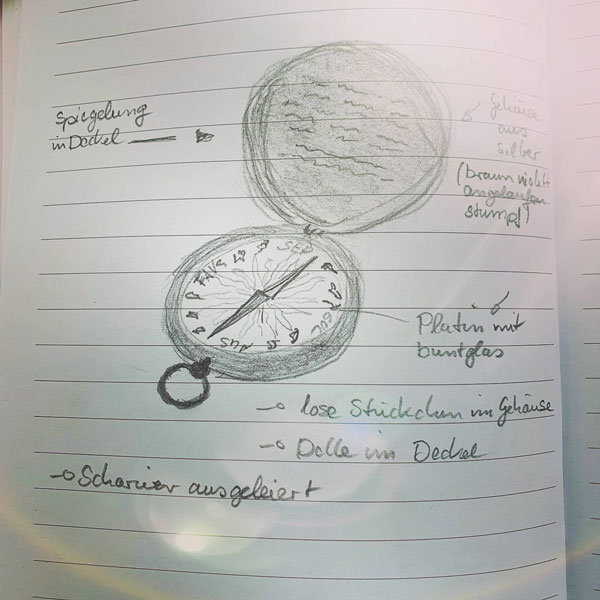 Spiegelung
in Deckel
Gehäuse
aus
Silber
(braun violett
angelaufen
stumpf)
SEP
FAVS
SUL
SUS
Platin mit
buntglas
lose Stückchen im Gehäuse
Delle im Deckel
Scharnier ausgeleiert